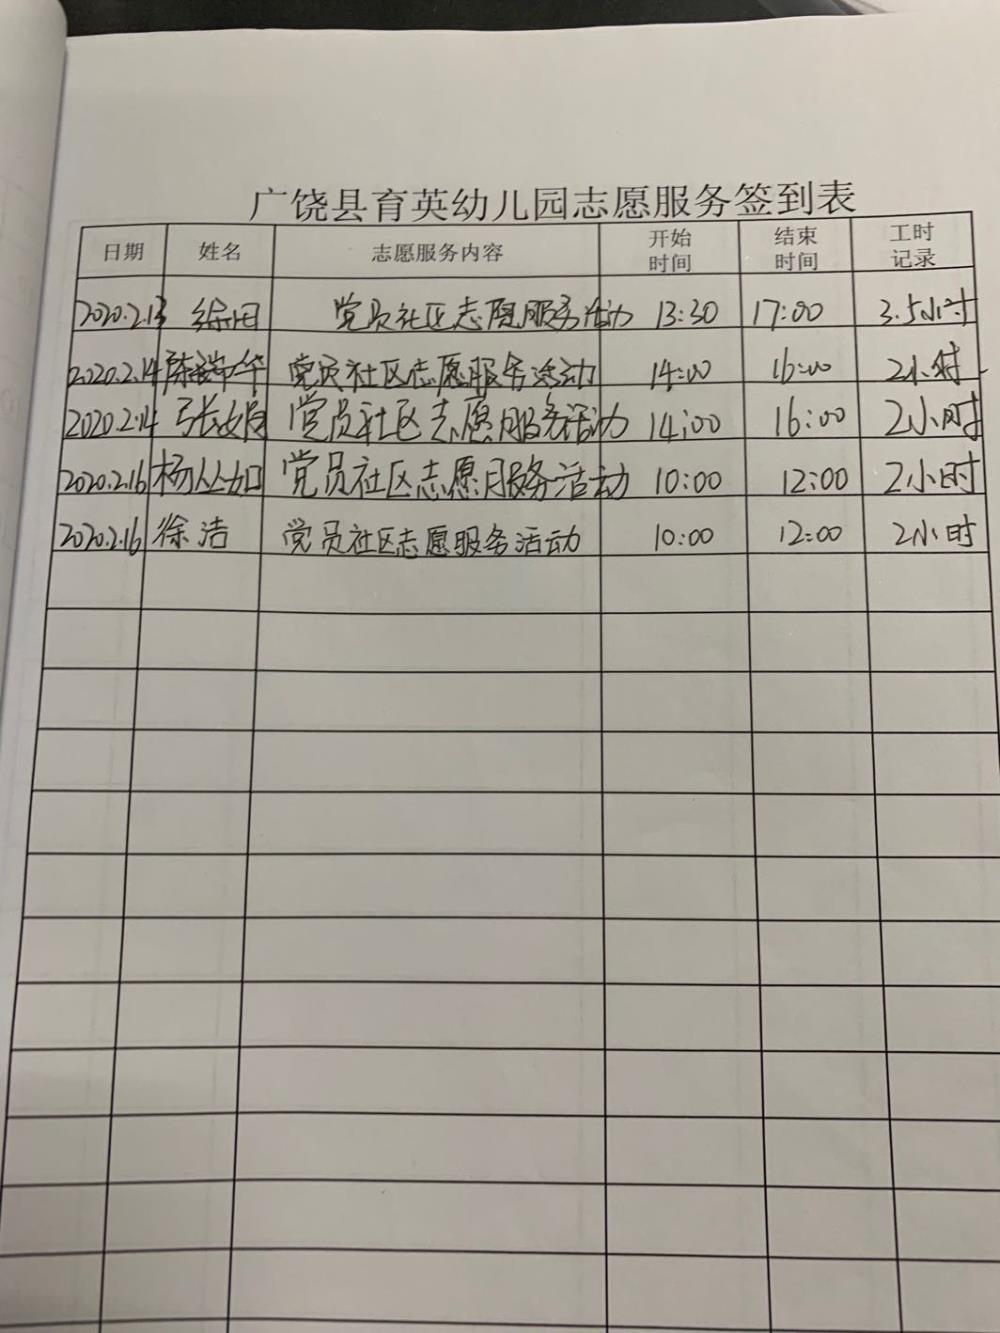 广饶县育英幼儿园志愿服务签到表
日期 姓名 志愿服务内容 开始时间 结束时间 工时记录
2020.2.13 党员社区志愿服务活动 13:30 17:00 3.5小时
2020.2.14 陈瑞华 党员社区志愿服务活动 14:00 16:00 2小时
2020.2.14 张娟 党员社区志愿服务活动 14:00 16:00 2小时
2020.2.16 杨丛如 党员社区志愿服务活动 10:00 12:00 2小时
2020.2.16 徐洁 党员社区志愿服务活动 10:00 12:00 2小时